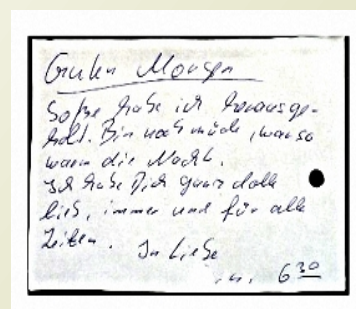 Guten Morgen
Soße habe ich herausge-
holt. Bin noch müde, war so
warm die Nacht.
Ich habe Dich ganz doll
lieb, immer und für alle
Zeiten. In Liebe
6 30